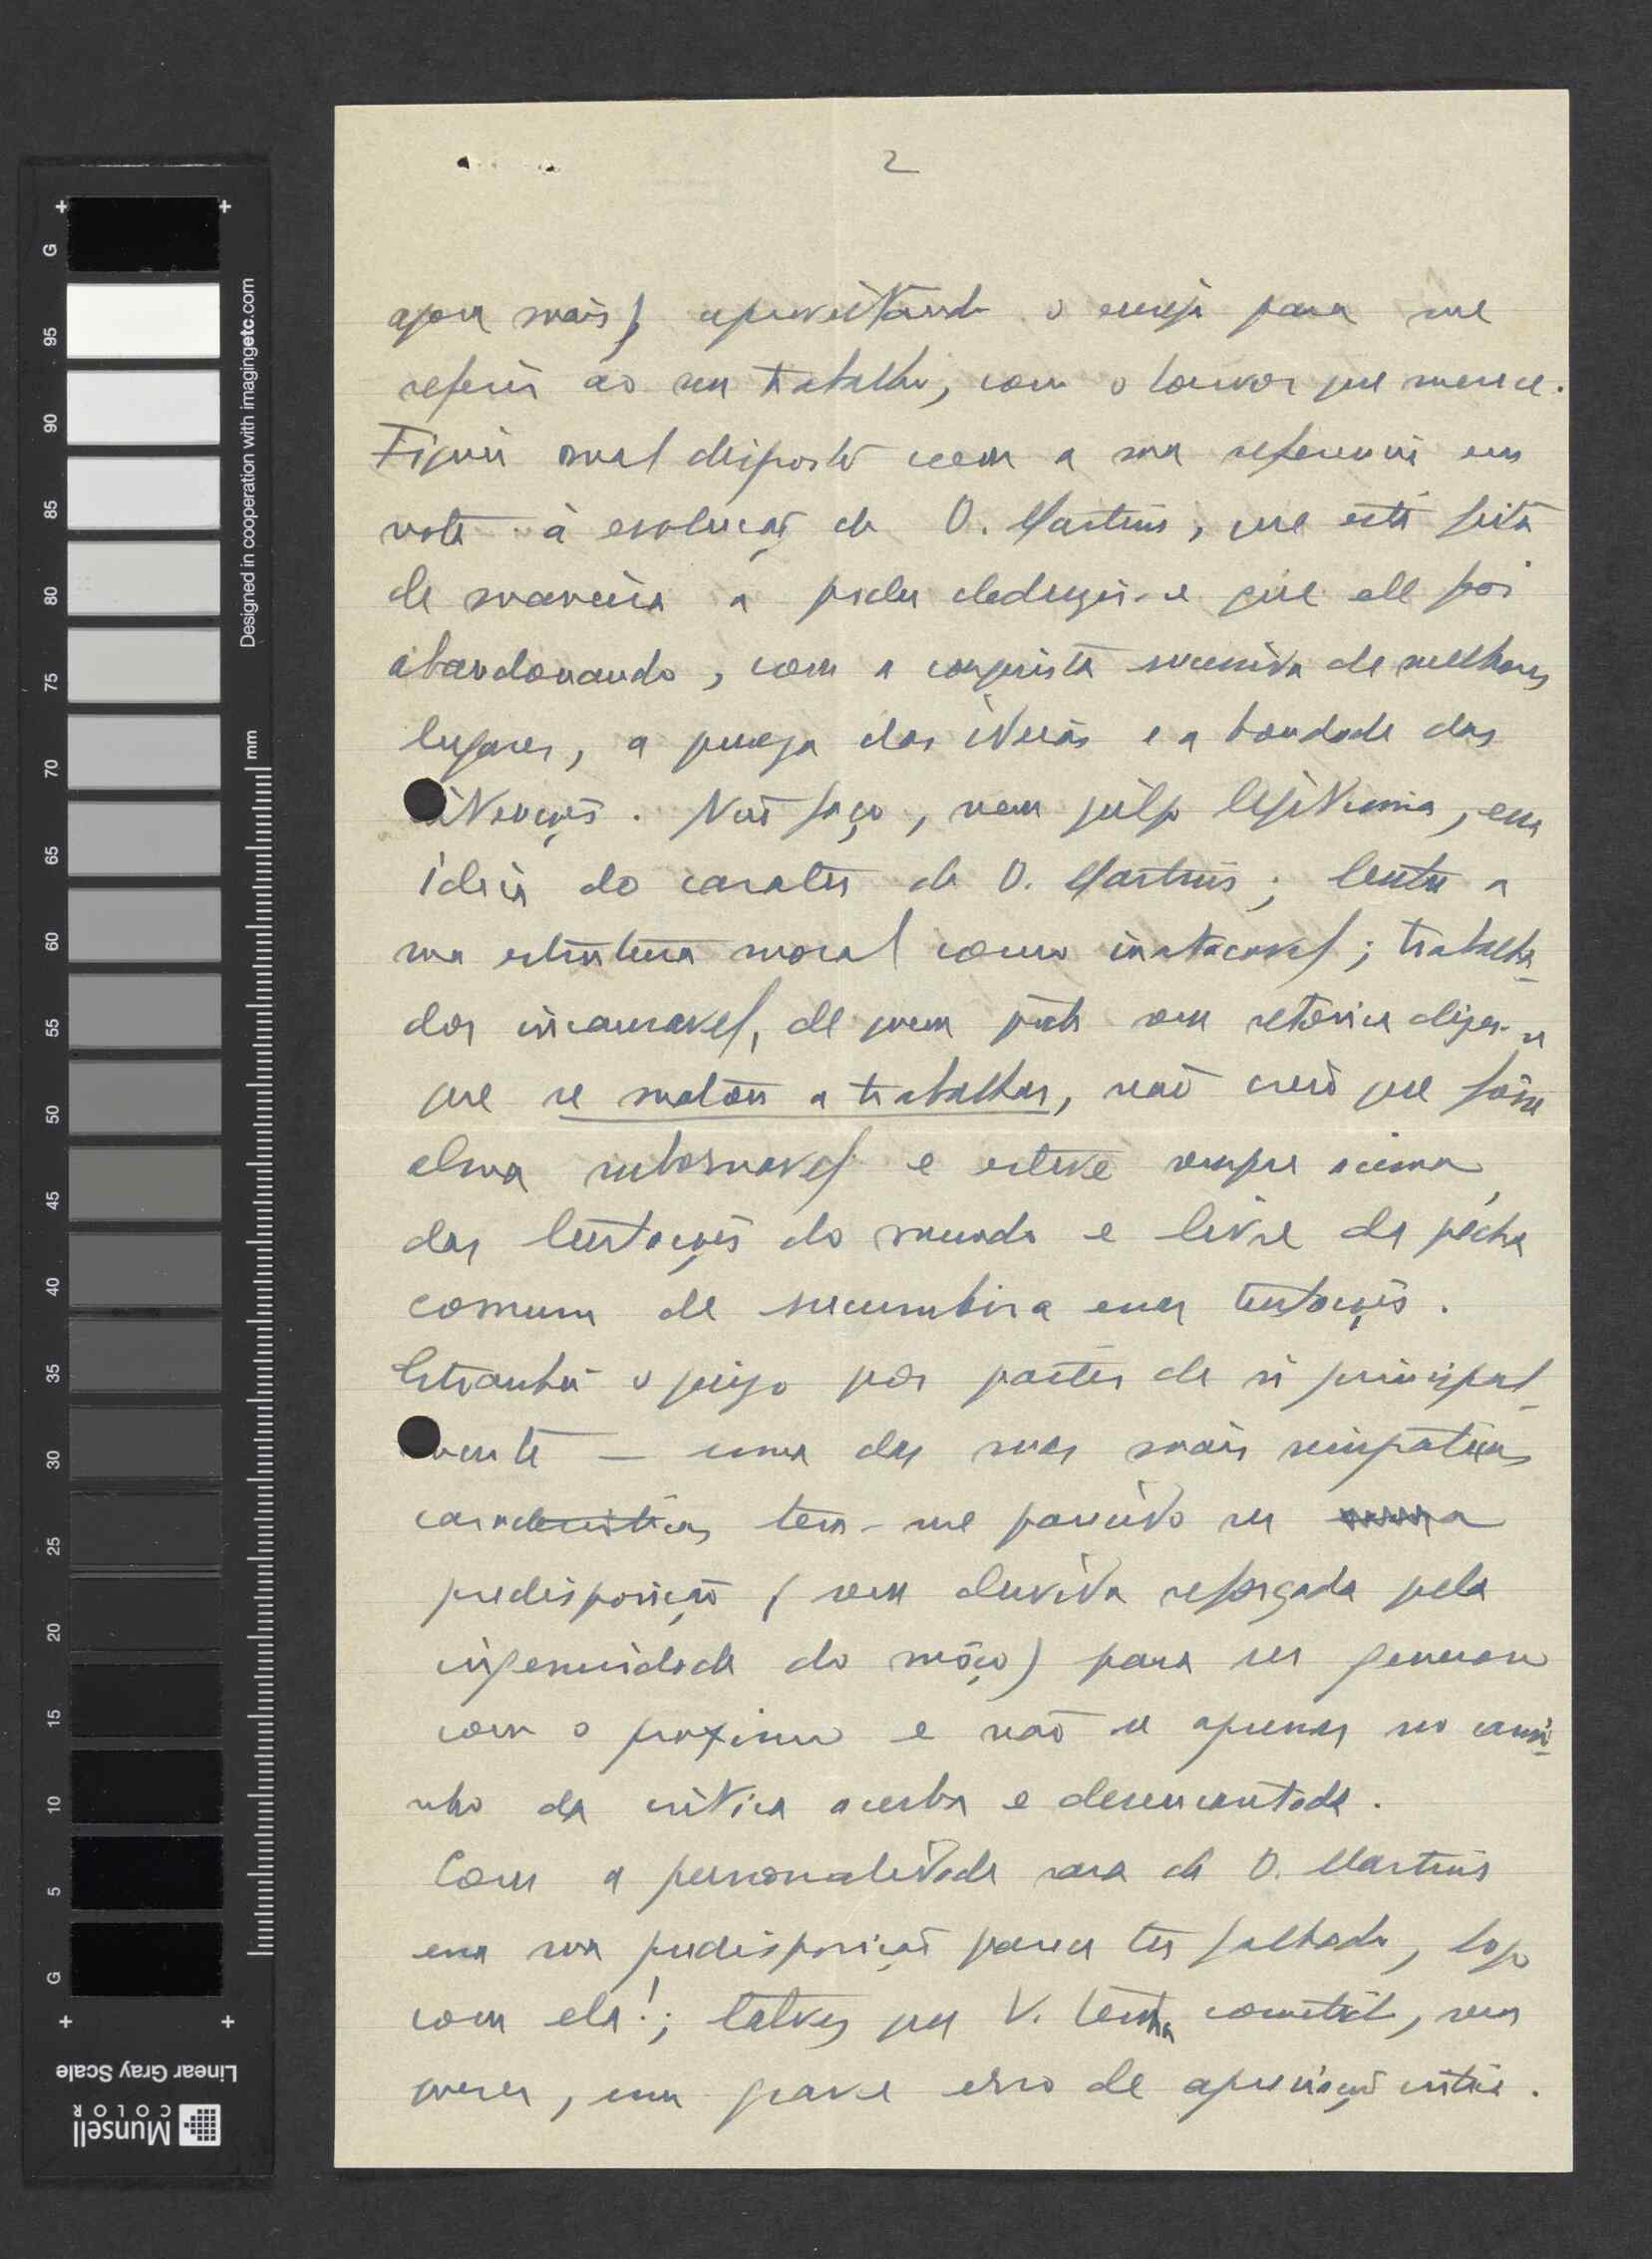 2
agora mais) aproveitando o ensejo para me
referir ao seu trabalho, com o louvor que merece.
Fiquei mal disposto com a sua referencia em
nota à evolução de O. Martins, que está feita
de maneira a poder deduzir-se que ele foi
abandonando, com a conquista sucessiva de melhores
lugares, a pureza das ideias e a bondade das
intenções. Não faço, nem julgo legitima, essa
ideia do carater de O. Martins; tenho a
sua estrutura moral como inatacavel; trabalha-
dor incansavel, de quem pode sem retórica dizer-se
que se matou a trabalhar, não creio que fôsse
alma subornavel e esteve sempre acima
das tentações do mundo e livre da pécha
comum de sucumbir a essas tentações.
Estranhei o juizo por partir de si principal-
mente — uma das suas mais simpaticas
caracteristicas tem-me parecido ser a
predisposição (sem duvida reforçada pela
ingenuidade do môço) para ser generoso
com o proximo e não se apressar no cami-
nho da critica acerba e desencantada.
Com a personalidade rara de O. Martins
essa sua predisposição parece ter falhado, logo
com ela!; talvez que V. tenha cometido, sem
querer, um grave erro de apreciação critica.
G 95 90 85 80 75 70 65 60 55 50 45 40 35 30 25 20 15 10 5 G
mm
Designed in cooperation with imagingetc.com
Linear Gray Scale
Munsell
COLOR